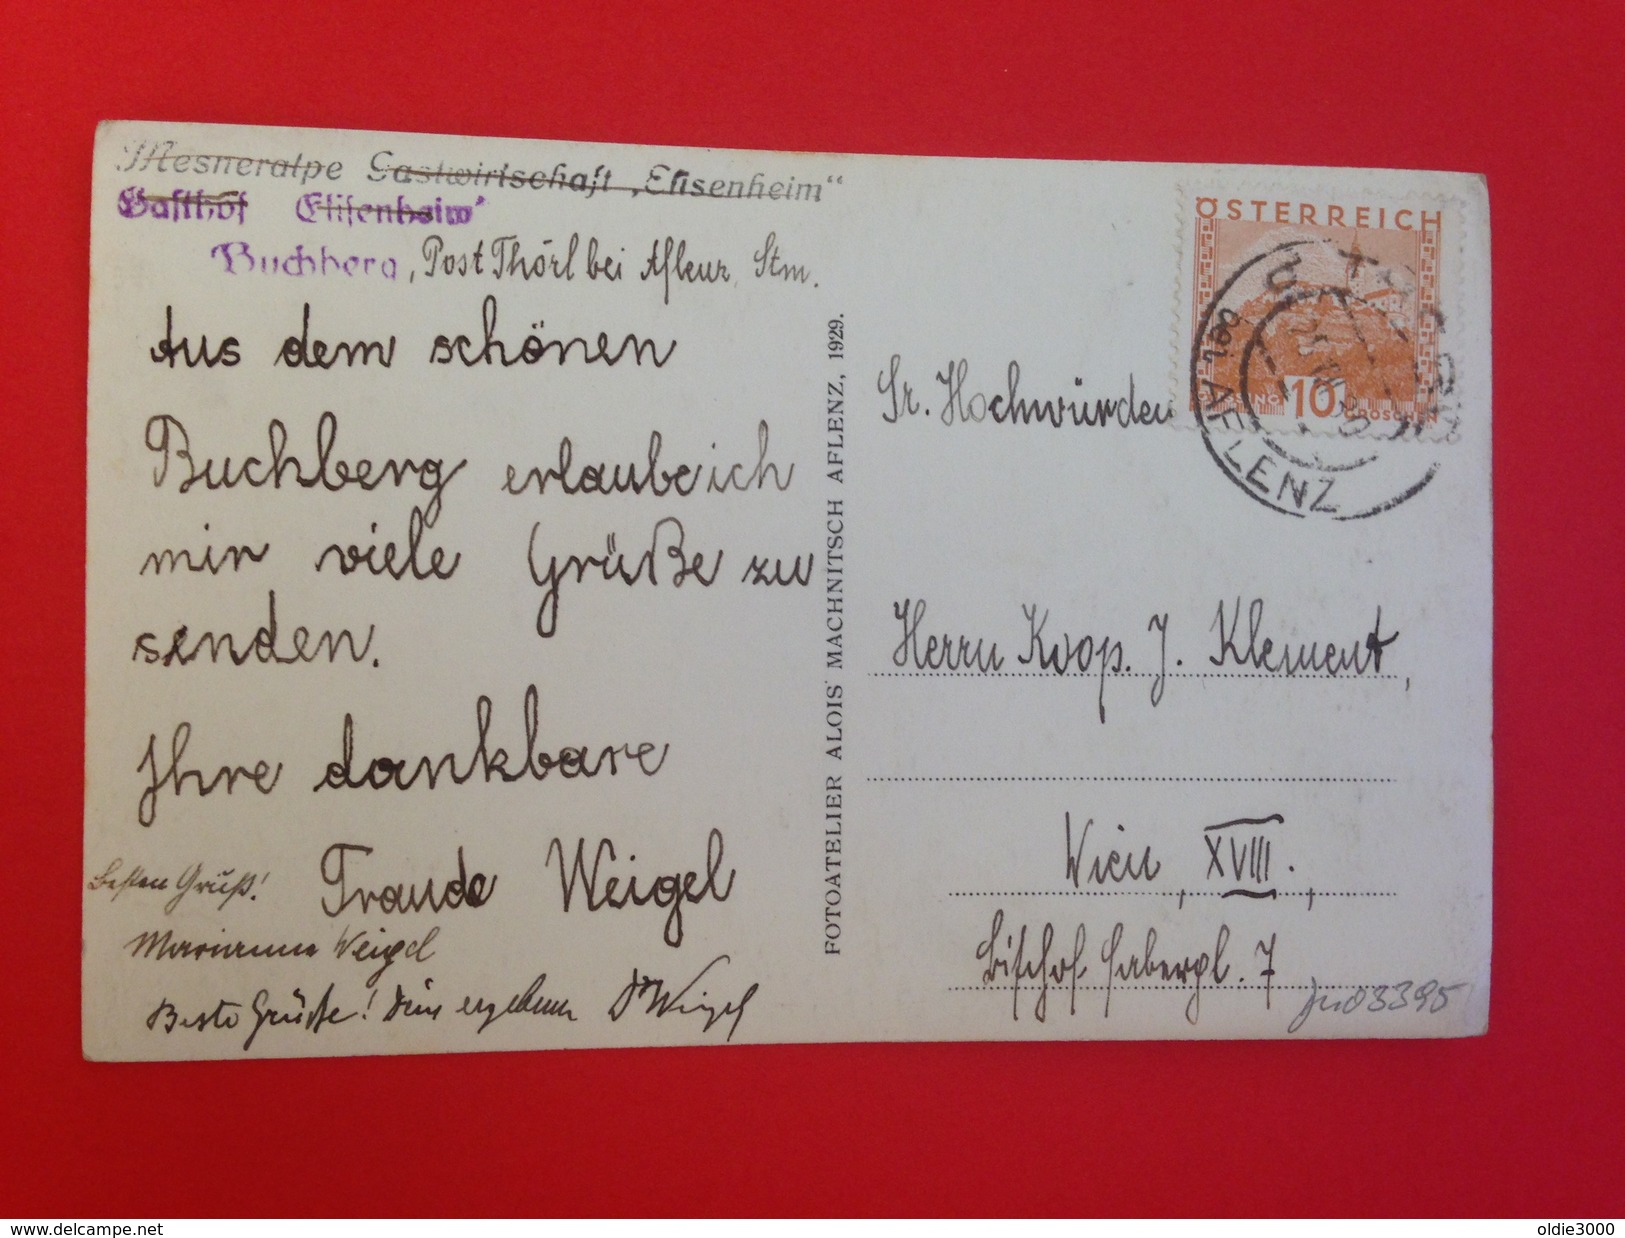 Mesneralpe Gastwirtschaft „Elisenheim“
Gasthof Elisenheim“
Buchberg, Post Thörl bei Aflenz, Stm.
Aus dem schönen
Buchberg erlaube ich
mir viele Grüße zu
senden.
Ihre dankbare
Traude Weigel
Besten Gruß!
Marianne Weigel
Beste Grüße! Ihr ergebener Dr Weigel
FOTOATELIER ALOIS MACHNITSCH AFLENZ, 1929.
ÖSTERREICH
10
GROSCHEN
bei AFLENZ
Sr. Hochwürden
Herrn Koop. J. Klement,
Wien, XVIII.,
Bischof-Faberpl. 7
www.delcampe.net
oldie3000